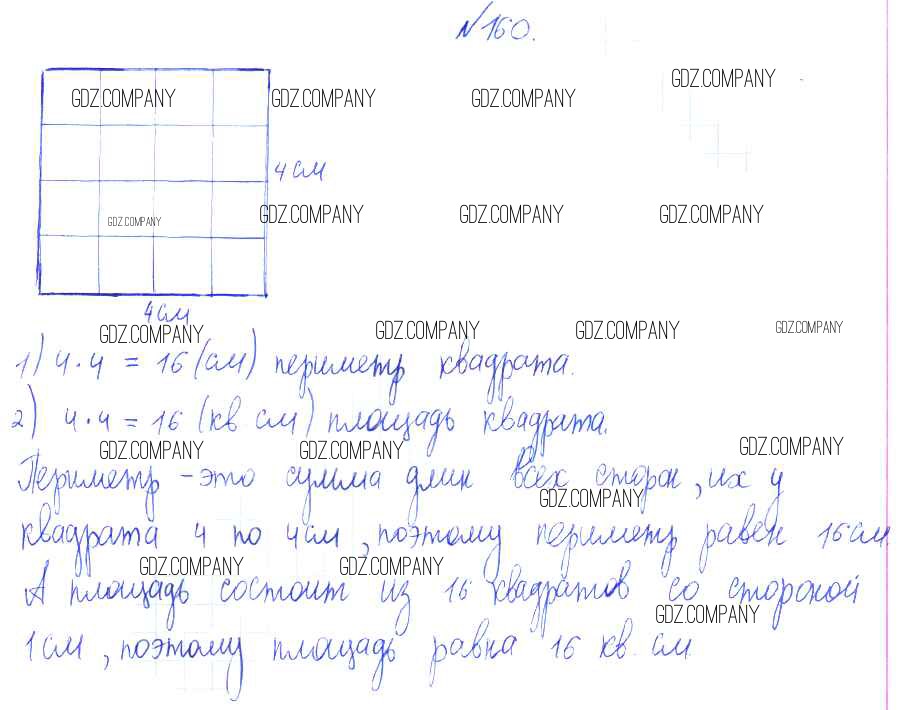 №160.
GDZ.COMPANY
GDZ.COMPANY GDZ.COMPANY GDZ.COMPANY
4 см
GDZ.COMPANY GDZ.COMPANY GDZ.COMPANY
GDZ.COMPANY
4 см
GDZ.COMPANY GDZ.COMPANY GDZ.COMPANY GDZ.COMPANY
1) 4 · 4 = 16 (см) периметр квадрата.
2) 4 · 4 = 16 (кв см) площадь квадрата.
GDZ.COMPANY GDZ.COMPANY GDZ.COMPANY
Периметр – это сумма длин всех сторон, их у
GDZ.COMPANY
квадрата 4 по 4 см, поэтому периметр равен 16 см
GDZ.COMPANY GDZ.COMPANY
А площадь состоит из 16 квадратов со стороной
GDZ.COMPANY
1 см, поэтому площадь равна 16 кв. см